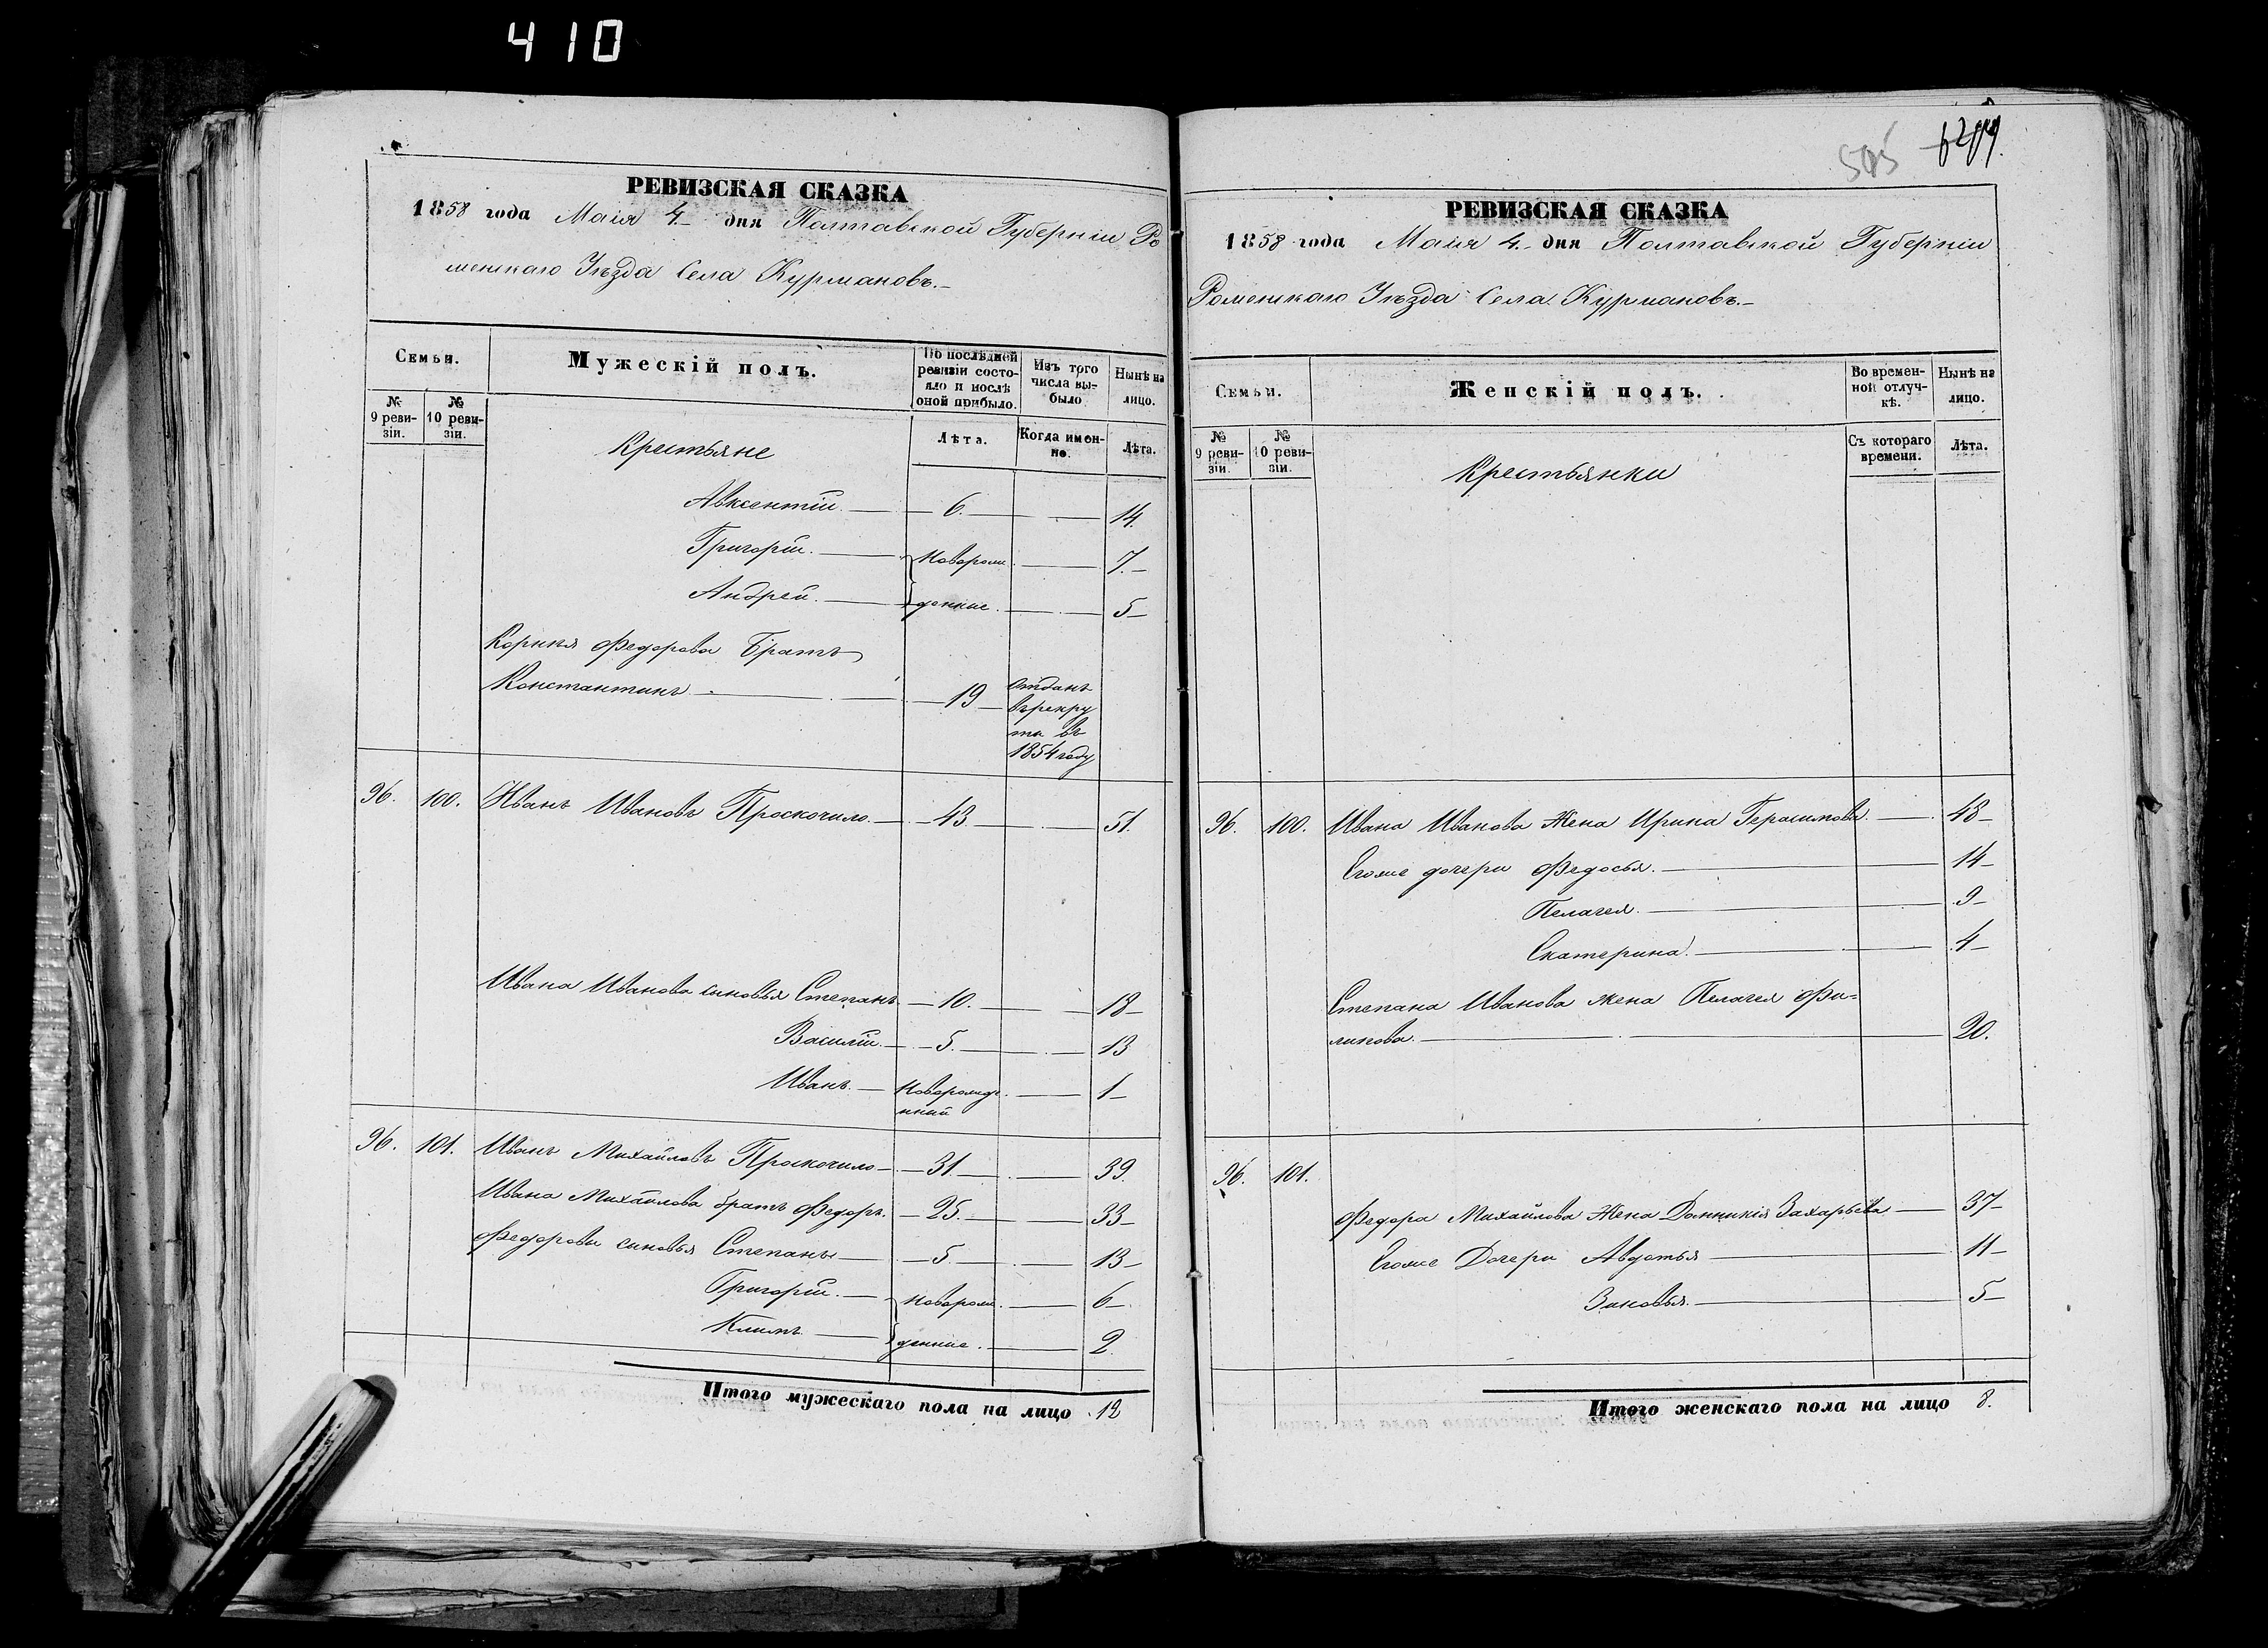 410
РЕВИЗСКАЯ СКАЗКА
1858 года Маія 4 дня Полтавской Губерніи Ро
менскаго Уѣзда Села Курмановъ.
Семьи.
Мужескій полъ.
По послѣдней ревизіи состояло и послѣ оной прибыло.
Изъ того числа выбыло
Нынѣ на лицо.
№ 9 ревизіи.
№ 10 ревизіи.
Лѣта.
Когда именно.
Лѣта.
Крестьяне
Авксентій 6. 14.
Григорій. Новорож 7.
Андрей. денние. 5
Корнѣя Федорова Братъ
Константинъ 19 отданъ
въ рекру
ты въ
1854 году
96. 100. Иванъ Ивановъ Проскочило 43 51.
Ивана Иванова сыновья Степанъ 10. 18
Василій 5. 13
Иванъ. Новорожде
нный 1
96. 101. Иванъ Михайловъ Проскочило 31 39.
Ивана Михайлова братъ Федоръ. 25. 33
Федорови сыновья Степанъ 5 13
Григорій. Новорож 6
Климъ денние. 2.
Итого мужескаго пола на лицо 12
505
РЕВИЗСКАЯ СКАЗКА
1858 года Маія 4 дня Полтавской Губерніи
Роменскаго Уѣзда Села Курмановъ.
Семьи.
Женскій полъ.
Во временной отлучкѣ.
Нынѣ на лицо.
№ 9 ревизіи.
№ 10 ревизіи.
Съ котораго времени.
Лѣта.
Крестьянки
96. 100. Ивана Иванова Жена Ирина Герасимова 48
Егоже дочери Федосья. 14
Пелагея. 9
Екатерина. 4
Степана Иванова жена Пелагея Фи=
липова. 20.
96. 101.
Федора Михайлова Жена Домникія Захарьева 37
Егоже Дочери Авдотья 11
Зиновья. 5
Итого женскаго пола на лицо 8.